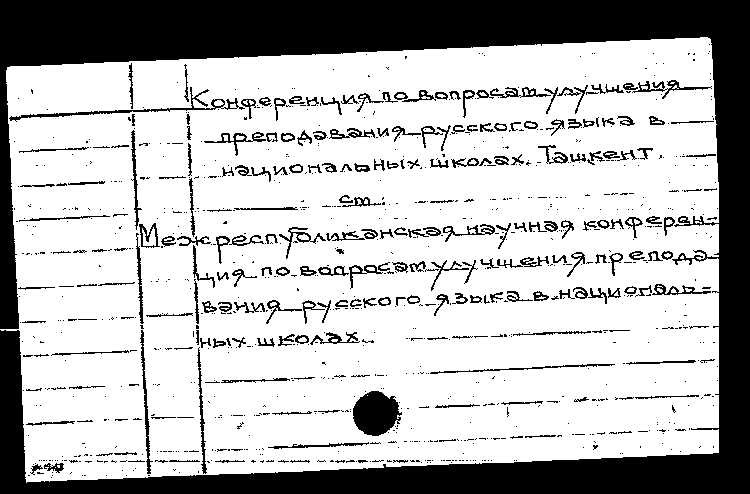 Конференция по вопросам улучшения
преподавания русского языка в
национальных школах. Ташкент.
см.
Межреспубликанская научная конферен-
ция по вопросам улучшения препода-
вания русского языка в националь-
ных школах.